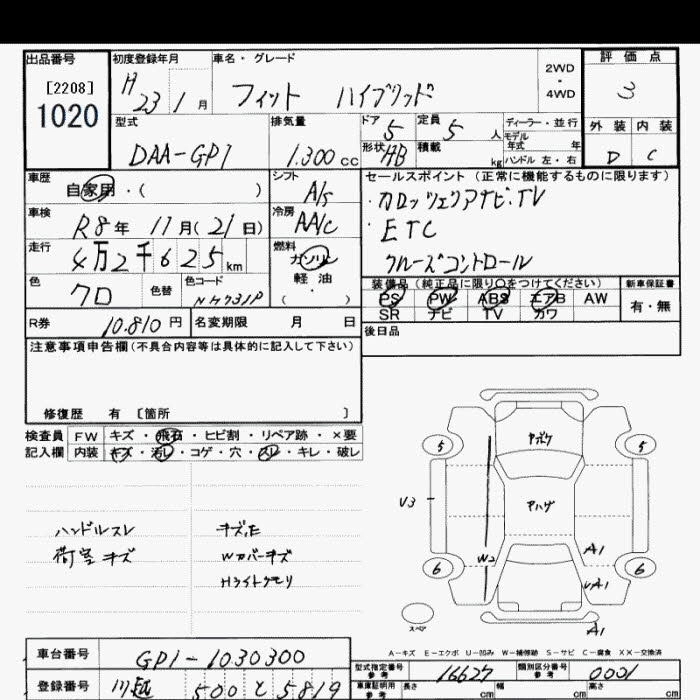 出品番号 初度登録年月 車名・グレード 2WD・4WD 評価点
[2208]
1020
H 23年 1月 フィット ハイブリッド 3
型式 排気量 ドア 5 定員 5人 ディーラー・並行 外装 内装
DAA-GP1 1.300cc 形状 HB 積載 kg モデル年式 年 ハンドル 左・右 D C
車歴 自家用・( ) シフト A/s セールスポイント (正常に機能するものに限ります)
車検 R8年 11月(21日) 冷房 AA/c ・カロッツェリアナビ.TV
走行 4万2千625km 燃料 ガソリン 軽油 ・( ) ・ETC
色 クロ 色替 色コード NH731P クルーズコントロール
装備品 (純正品に限り○をつけてください) 新車保証書
PS PW ABS エアB AW 有・無
SR ナビ TV カワ
R券 10.810円 名変期限 月 日 後日品
注意事項申告欄(不具合内容等は具体的に記入して下さい)
修復歴 有 [箇所 ]
検査員 FW キズ・飛石・ヒビ割・リペア跡・×要
記入欄 内装 キズ・汚レ・コゲ・穴・スレ・キレ・破レ
ハンドルスレ
荷室キズ
Wカバーキズ
Hライトクモリ
5 アポケ 5
V3 アハゲ
6 W2 A1 6
スペア A1
A－キズ E－エクボ U－凹み W－補修跡 S－サビ C－腐食 XX－交換済
車台番号 GP1-1030300 型式指定番号 参考 16627 類別区分番号 参考 0001
登録番号 川越 500 と 5819 車庫証明用 参考 長さ cm 幅 cm 高さ cm